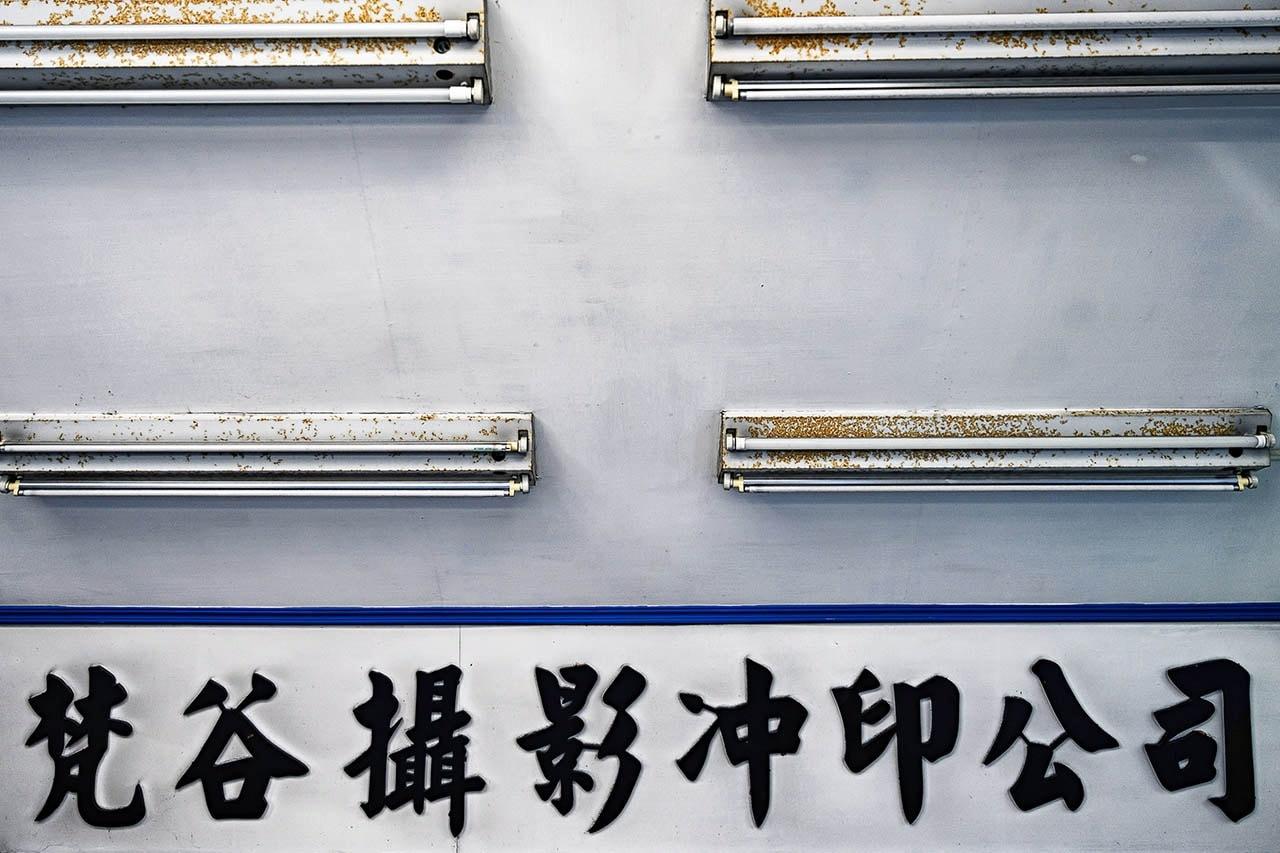 梵谷攝影冲印公司